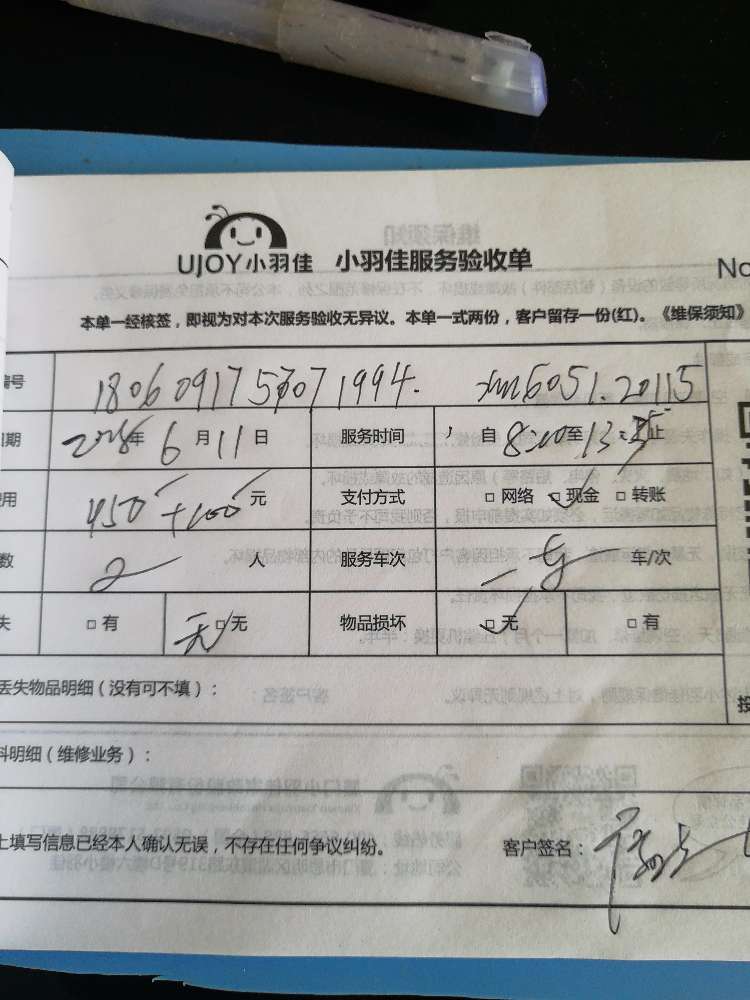 UJOY小羽佳 小羽佳服务验收单
No
本单一经核签，即视为对本次服务验收无异议。本单一式两份，客户留存一份(红)。《维保须知》
编号 18060917571994. 6051.20115
日期 2018年6月11日 服务时间 自8:00至13:止
费用 450+100元 支付方式 □网络 □现金 □转账
数 2人 服务车次 一 车/次
失 □有 无 □无 物品损坏 □无 □有
丢失物品明细（没有可不填）：
料明细（维修业务）：
上填写信息已经本人确认无误，不存在任何争议纠纷。 客户签名：